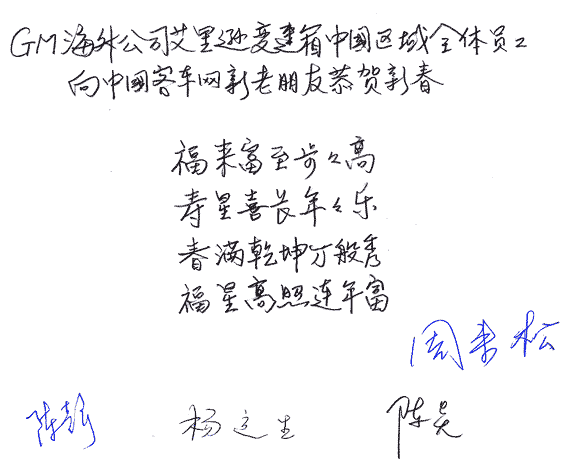 GM海外公司艾里逊变速箱中国区域全体员工
向中国客车网新老朋友恭贺新春
福来富至步々高
寿星喜长年々乐
春满乾坤万般秀
福星高照连年富
周来松
陈 杨 生 陈昊